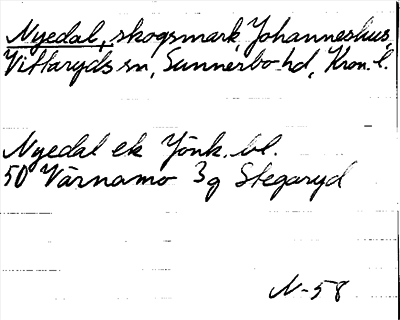 Nyedal, skogsmark, Johanneshus,
Vittaryds sn, Sunnerbo hd, Kron. l.
Nyedal ek Jönk. bl.
50 Värnamo 3g Stegaryd
N-58